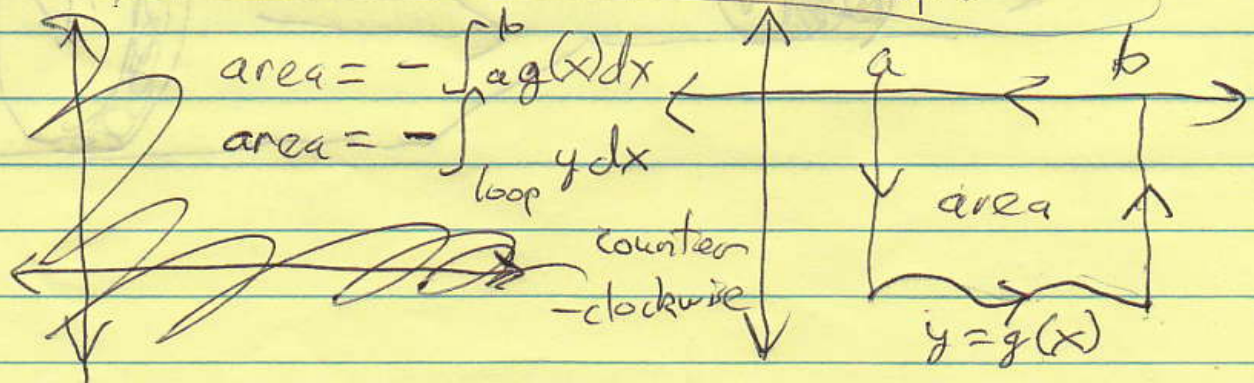 area = - ∫ₐᵇ g(x)dx
area = - ∫ y dx
loop
counter
-clockwise
a b
area
y = g(x)